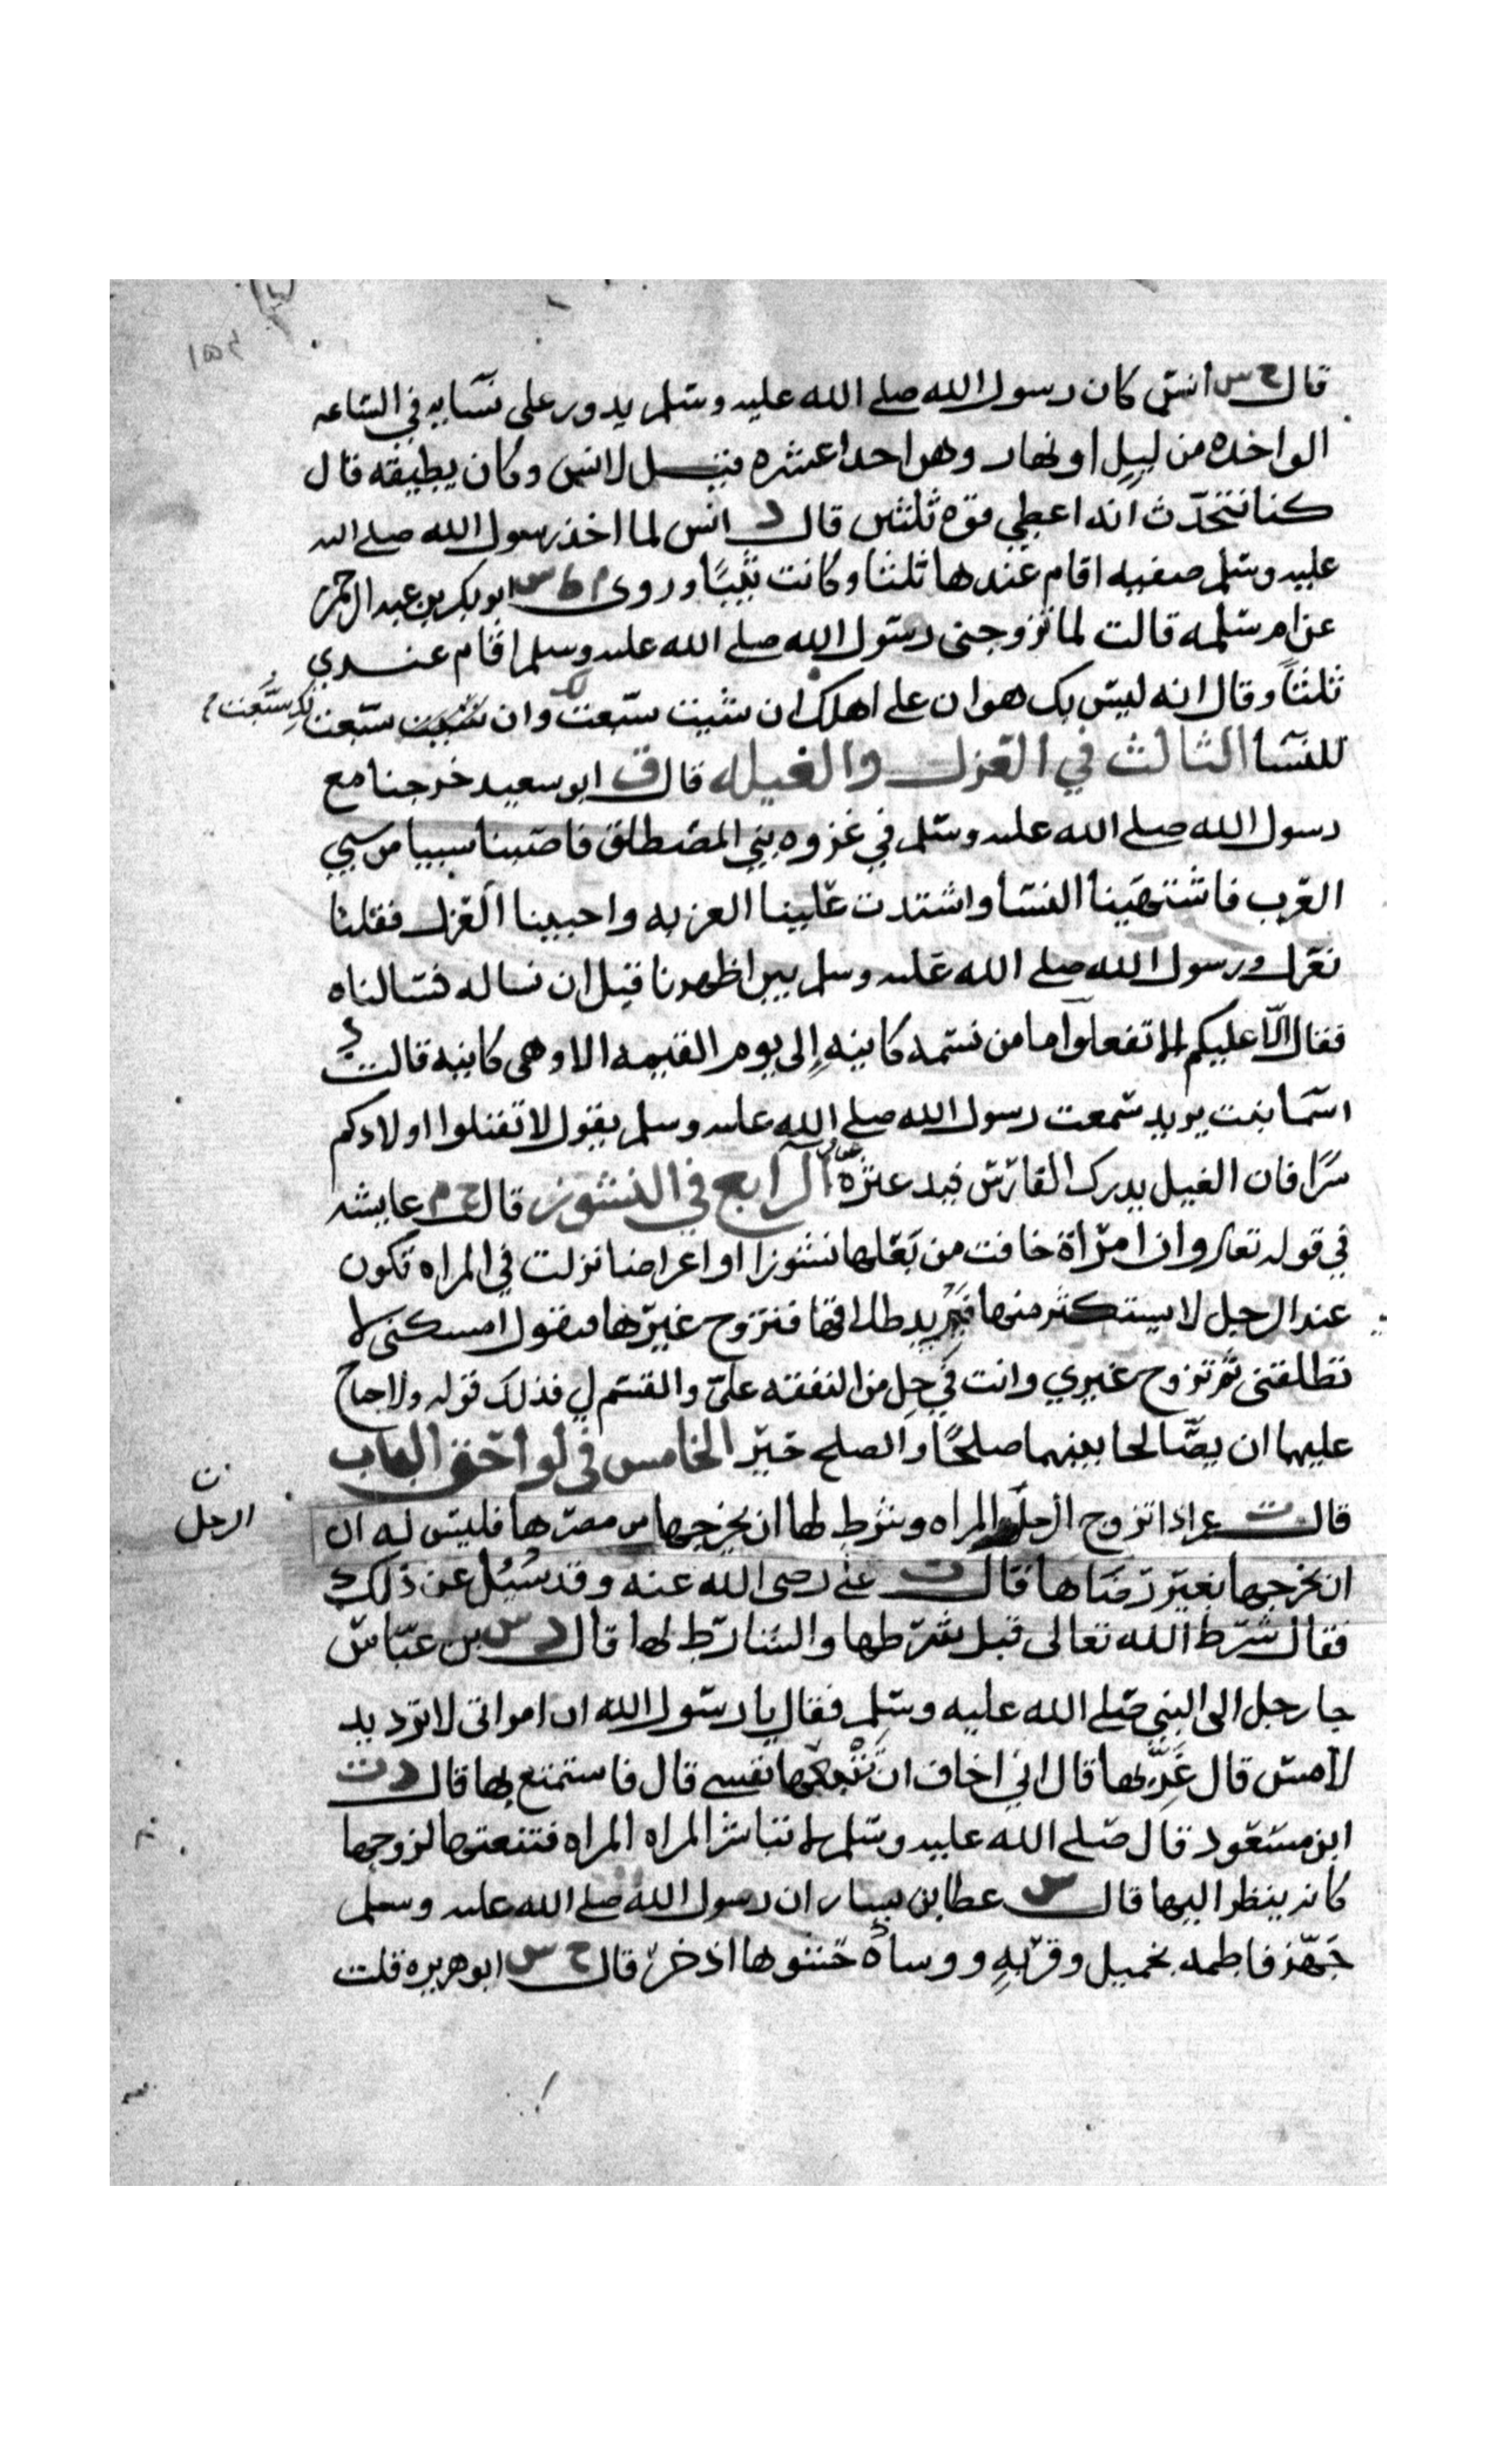 قال خ س انس كان رسول الله صلى الله عليه وسلم يدور على نسايه في الساعه
الواحده من ليل او نهار وهن احدا عشره قيل لانس وكان يطيقه قال
كنا نتحدث انه اعطي قوة ثلثين قال د انس لما اخذ رسول الله صلى الله
عليه وسلم صفيه اقام عندها ثلثا وكانت ثيبًا وروى م ط س ابو بكر بن عبد الرحمن
عن ام سلمه قالت لما تزوجنى رسول الله صلى الله عليه وسلم اقام عندي
ثلثاً وقال انه ليس بك هوان على اهلك ان شيت سبعت لك وان سبعت لك سبعت
للنسا الثالث في العزل والغيله قال ق ابو سعيد خرجنا مع
رسول الله صلى الله عليه وسلم في غزوه بني المصطلق فاصبنا سبيا من سبي
العرب فاشتهينا النسا واشتدت علينا العزبه واحببنا العزل فقلنا
نعزل ورسول الله صلى الله عليه وسلم بين اظهرنا قبل ان نساله فسالناه
فقال لا عليكم الا تفعلوا ما من نسمه كاينهِ إلى يوم القيمه الا وهي كاينه قالت د
اسما بنت يزيد سمعت رسول الله صلى الله عليه وسلم يقول لا تقتلوا اولادكم
سرًا فان الغيل يدرك الفارس فيدعثره الرابع في النشوز قال خ م عايشه
في قوله تعالى وان امرأة خافت من بعلها نشوزا او اعراضا نزلت في المراه تكون
عند الرجل لا يستكثر منها فيريد طلاقها فتزوج غيرها فتقول امسكنى لا
تطلقنى ثم تزوج غيري وانت في حِلٍ من النفقه عليّ والقسم لي فذلك قوله ولا جناح
عليهما ان يصّالحا بينهما صلحًا والصلح خير الخامس في لواحق الباب
قال ت عمر اذا تزوج الرجل المراه وشرط لها ان لا يخرجها من مصرها فليس له ان
الرجل
ان يخرجها بغير رضاها قال ت علي رضى الله عنه وقد سُئل عن ذلك
فقال شرط الله تعالى قبل شرطها والشارط لها قال د س بن عباس
جا رجل الى النبي صلى الله عليه وسلم فقال يا رسول الله ان امراتى لا ترد يد
لامس قال غرّبها قال اني اخاف ان تتبعها نفسى قال فاستمتع بها قال د ت
ابن مسعود قال صلى الله عليه وسلم لا تباشر المراه المراه فتنعتها لزوجها
كانه ينظر اليها قال س عطا بن يسار ان رسول الله صلى الله عليه وسلم
جَهّز فاطمه بخميل وقربهٍ ووسادة حشوها اذخر قال خ س ابو هريره قلت